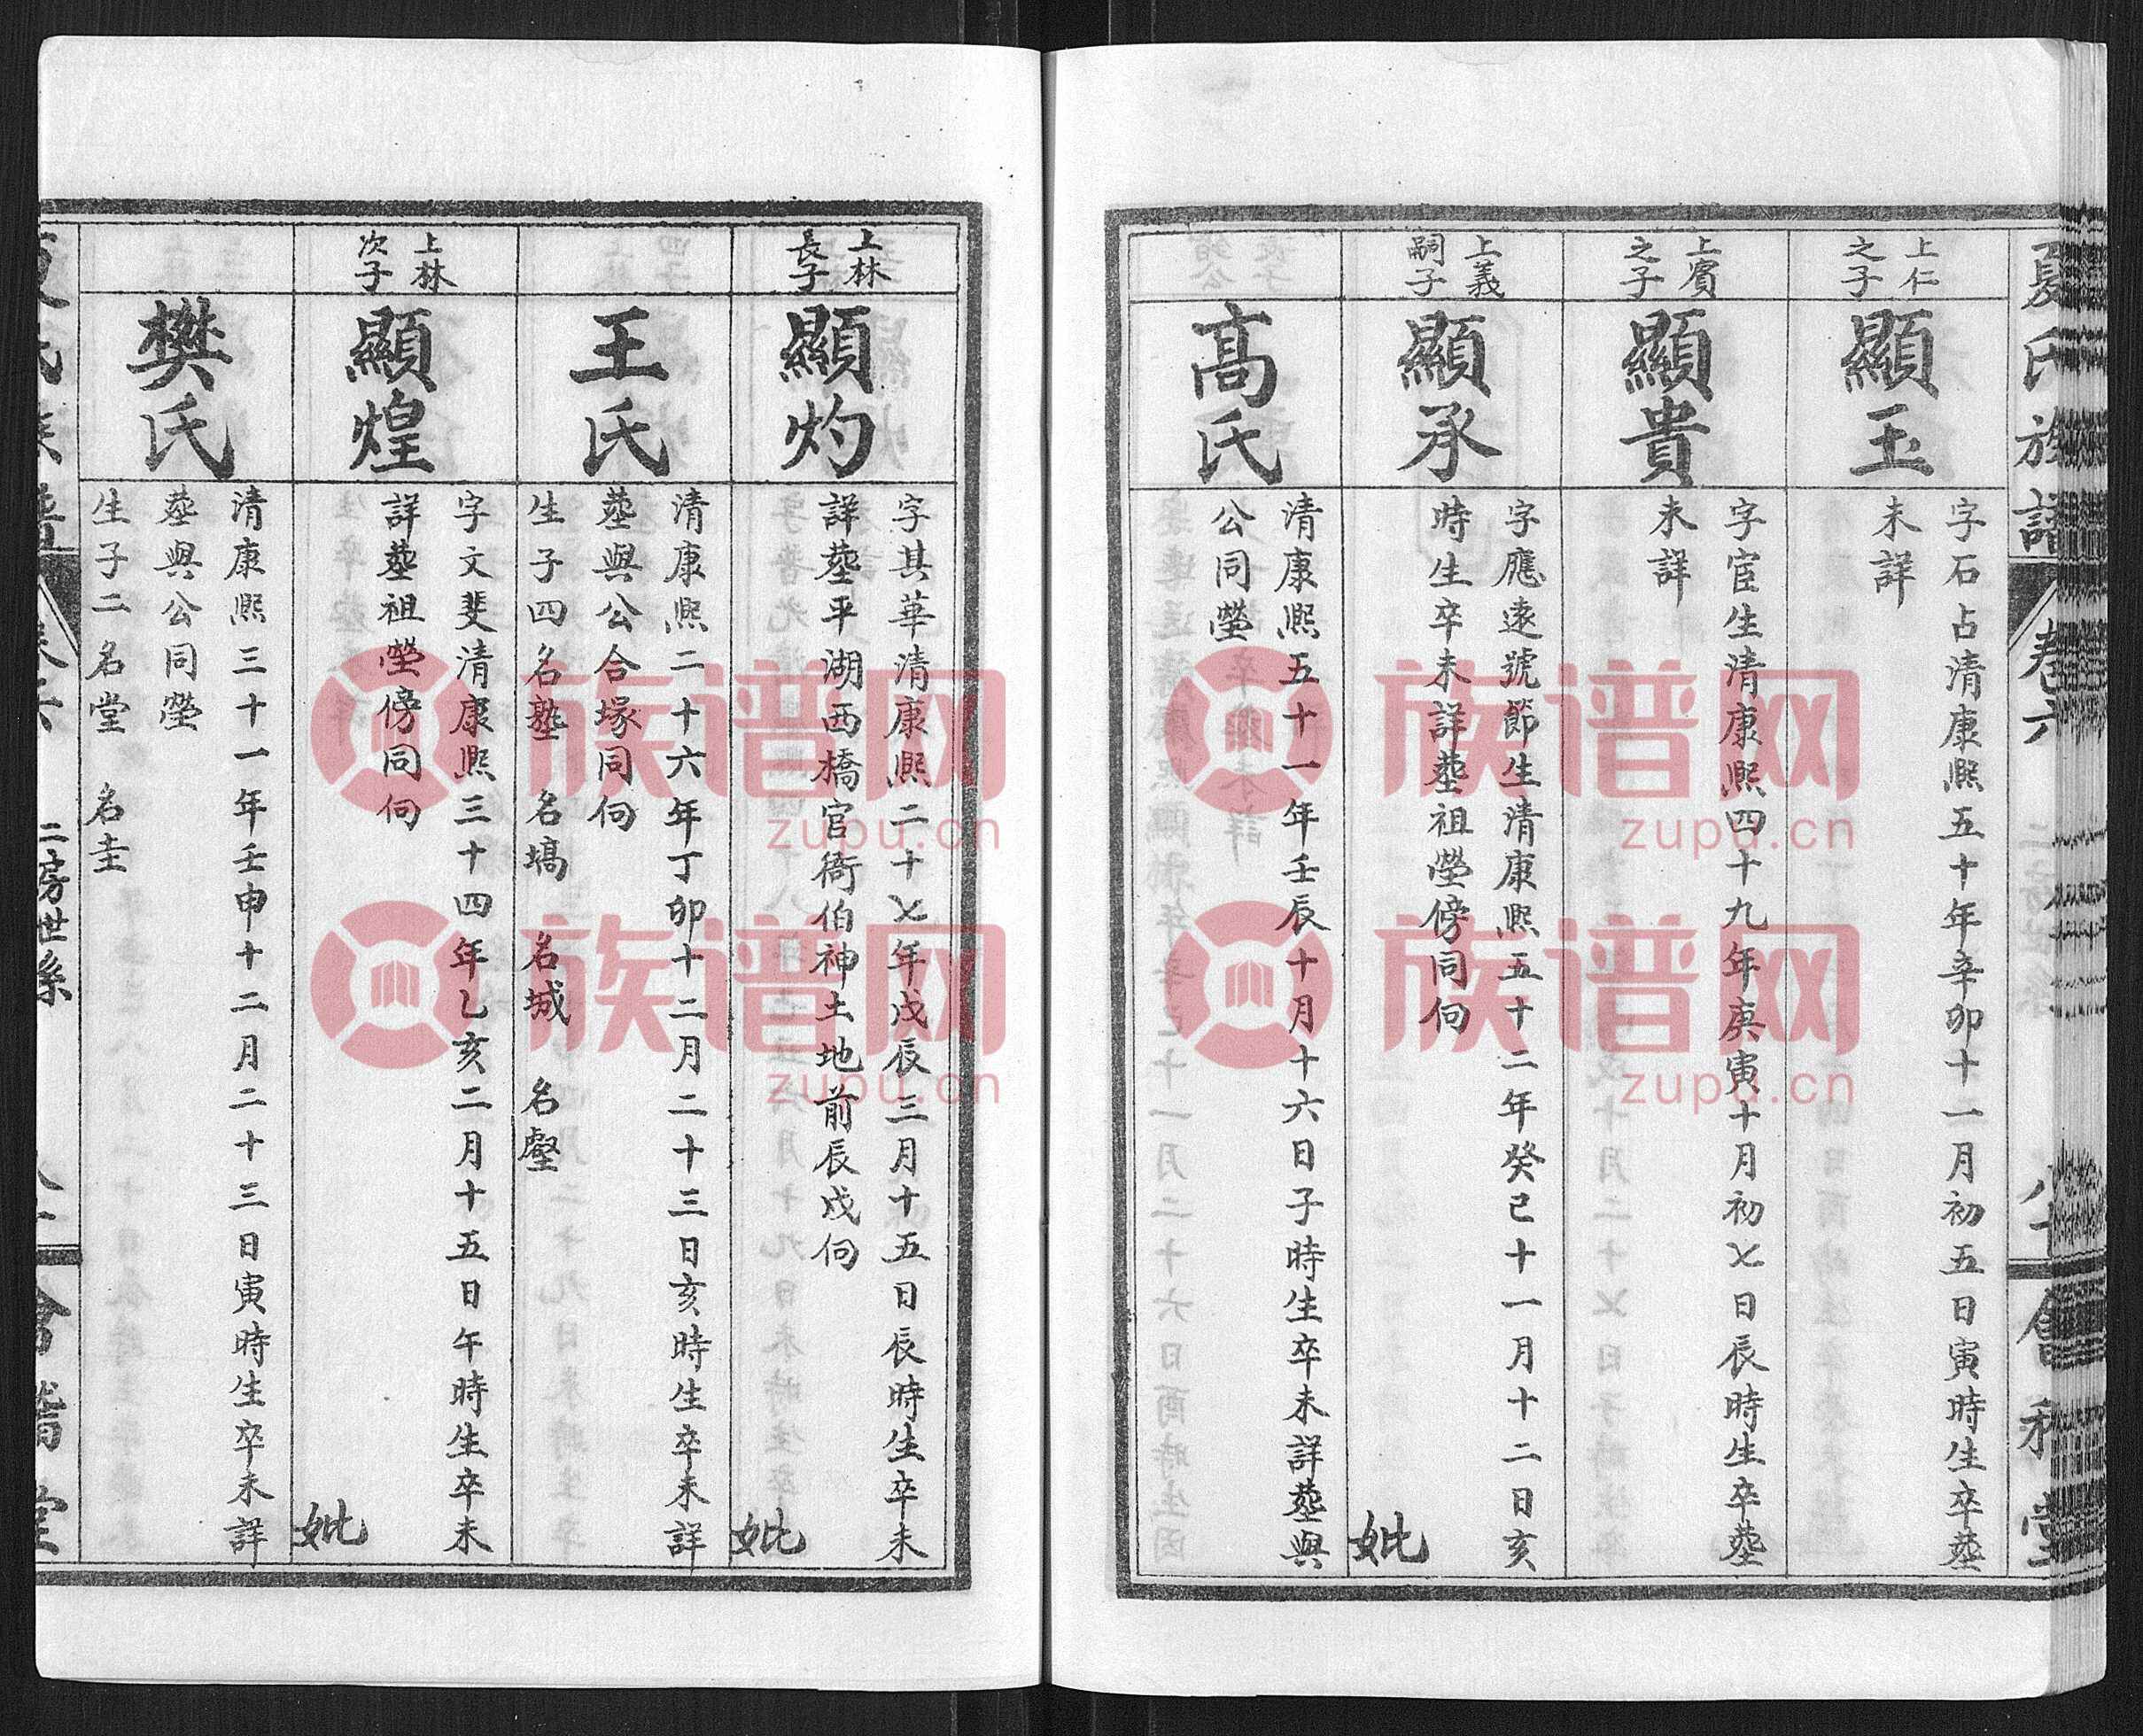 夏氏族譜
卷六
會稽堂
上仁之子
顯玉
字石占清康熙五十年辛卯十二月初五日寅時生卒塟
未詳
上賓之子
顯貴
字宦生清康熙四十九年庚寅十月初七日辰時生卒塟
未詳
上義嗣子
顯承
字應遠號節生清康熙五十二年癸巳十一月十二日亥
時生卒未詳塟祖塋傍同向
妣
高氏
清康熙五十一年壬辰十月十六日子時生卒未詳塟與
公同塋
上林長子
顯灼
字其華清康熙二十七年戊辰三月十五日辰時生卒未
詳塟平湖西橋官衙伯神土地前辰戌向
妣
王氏
清康熙二十六年丁卯十二月二十三日亥時生卒未詳
塟與公合塚同向
生子四名塾 名塙 名城 名壑
上林次子
顯煌
字文斐清康熙三十四年乙亥二月十五日午時生卒未
詳塟祖塋傍同向
妣
樊氏
清康熙三十一年壬申十二月二十三日寅時生卒未詳
塟與公同塋
生子二名堂 名圭
二房世系
族谱网
zupu.cn
族谱网
zupu.cn
族谱网
zupu.cn
族谱网
zupu.cn